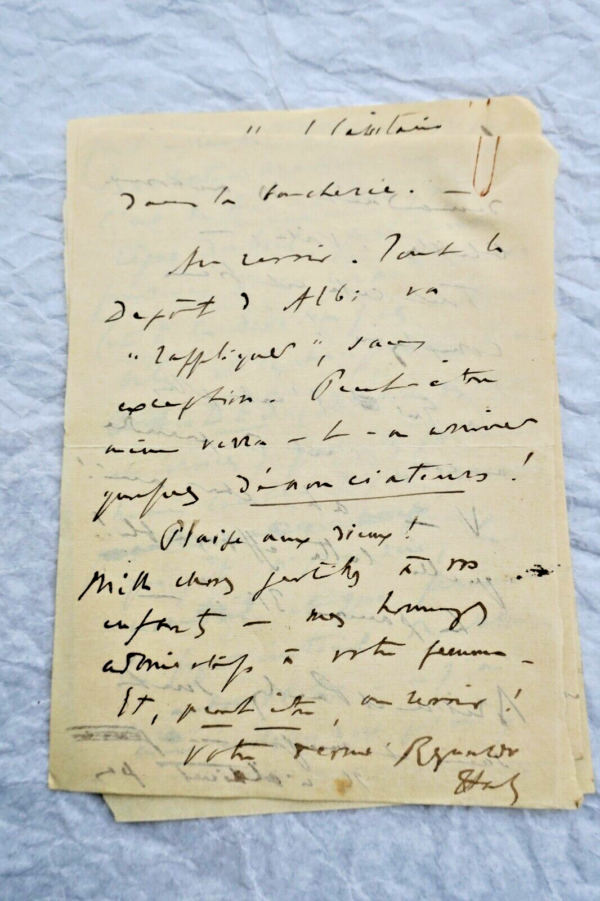 dans la boucherie. —
Au revoir. Tout le
Dépôt d'Albi va
"rappliquer", sans
exception. Peut-être
même verra-t-on arriver
quelques dénonciateurs !
Plaise aux dieux !
Mille choses gentilles à vos
enfants — mes hommages
admiratifs à votre femme —
Et, peut-être, au revoir !
Votre Reynaldo
Hahn